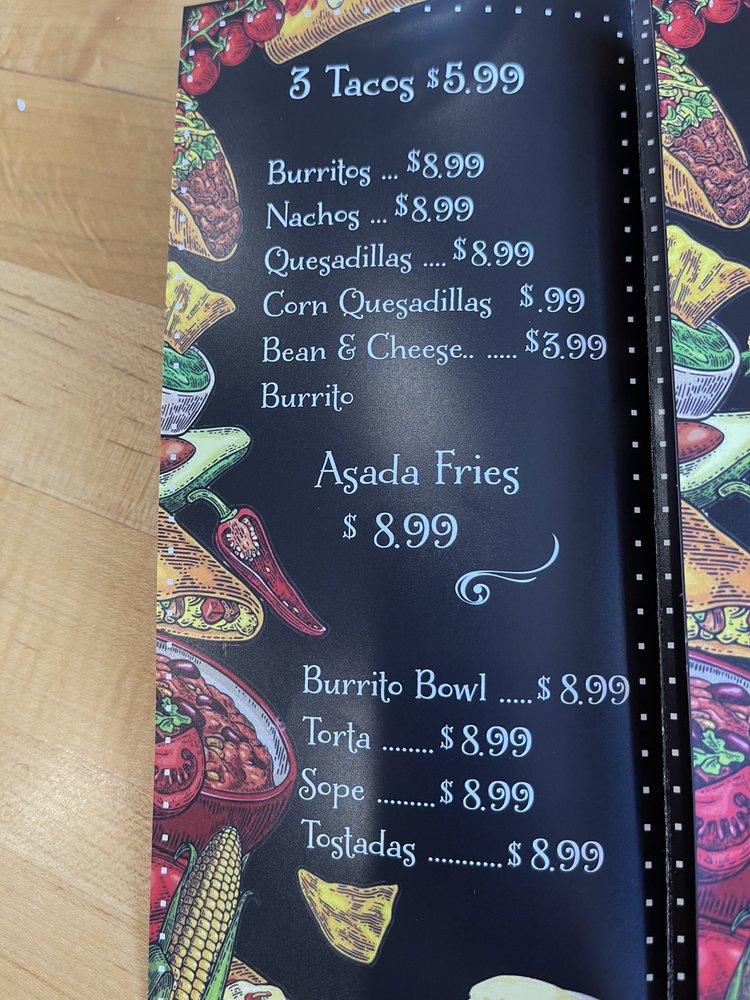 3 Tacos $5.99
Burritos ... $8.99
Nachos ... $8.99
Quesadillas .... $8.99
Corn Quesadillas $.99
Bean & Cheese.. ..... $3.99
Burrito
Asada Fries
$ 8.99
Burrito Bowl ..... $ 8.99
Torta ........ $ 8.99
Sope ......... $ 8.99
Tostadas ........... $ 8.99